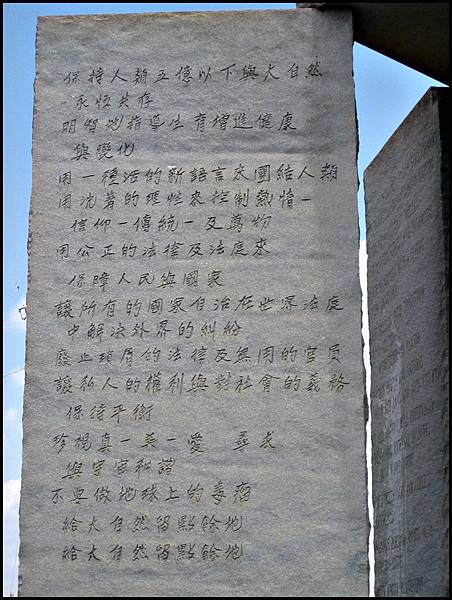 保持人類五億以下與大自然
永恆共存
明智地指導生育增進健康
與變化
用一種活的新語言來團結人類
用沈著的理性來控制熱情—
信仰—傳統—及萬物
用公正的法律及法庭來
保障人民與國家
讓所有的國家自治在世界法庭
中解決外界的糾紛
廢止瑣屑的法律及無用的官員
讓私人的權利與對社會的義務
保持平衡
珍視真—美—愛 尋求
與宇宙和諧
不要做地球上的毒瘤
給大自然留點餘地
給大自然留點餘地